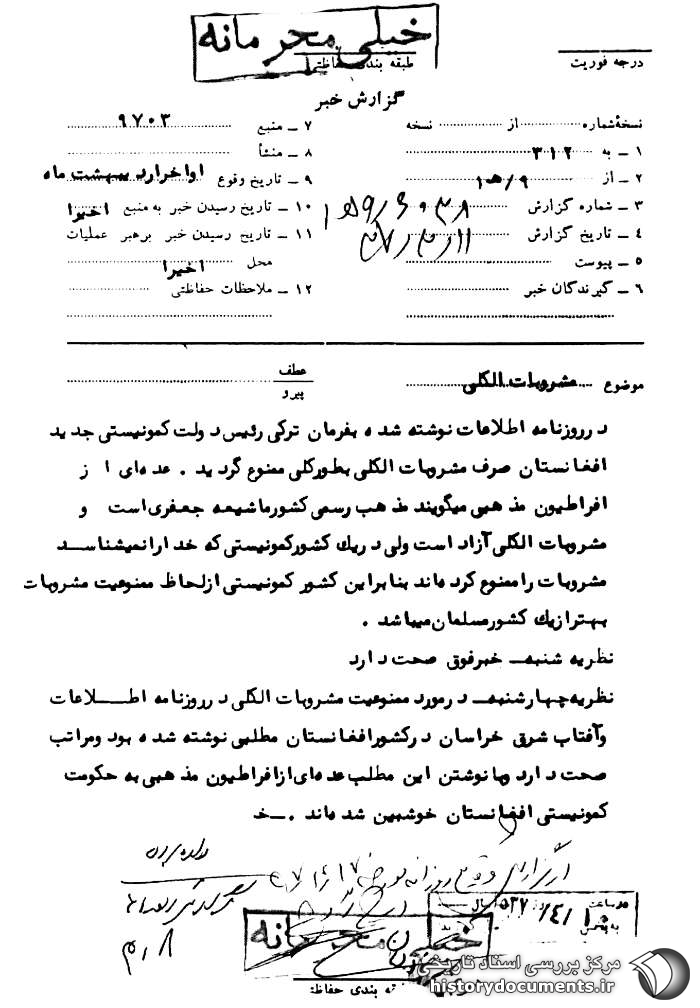 خیلی محرمانه
طبقه بندی حفاظتی
درجه فوریت
گزارش خبر
نسخهٔ شماره از نسخه
۱ ـ به ۳۱۲
۲ ـ از ۹/ه‍ ۱
۳ ـ شماره گزارش
۴ ـ تاریخ گزارش
۵ ـ پیوست
۶ ـ گیرندگان خبر
۷ ـ منبع ۹۷۰۳
۸ ـ منشأ
۹ ـ تاریخ وقوع اواخر اردیبهشت ماه
۱۰ ـ تاریخ رسیدن خبر به منبع اخیرا
۱۱ ـ تاریخ رسیدن خبر برهبر عملیات
محل اخیرا
۱۲ ـ ملاحظات حفاظتی
موضوع مشروبات الکلی
عطف
پیرو
در روزنامه اطلاعات نوشته شده بفرمان ترکی رئیس دولت کمونیستی جدید
افغانستان صرف مشروبات الکلی بطورکلی ممنوع گردید . عده‌ای از
افراطیون مذهبی میگویند مذهب رسمی کشور ما شیعه جعفری است و
مشروبات الکلی آزاد است ولی در یک کشور کمونیستی که خدا را نمیشناسد
مشروبات را ممنوع کرده‌اند بنابراین کشور کمونیستی از لحاظ ممنوعیت مشروبات
بهتر از یک کشور مسلمان میباشد .
نظریه شنبه ـ خبر فوق صحت دارد
نظریه چهارشنبه ـ در مورد ممنوعیت مشروبات الکلی در روزنامه اطلاعات
و آفتاب شرق خراسان در کشور افغانستان مطلبی نوشته شده بود و مراتب
صحت دارد و با نوشتن این مطلب عده‌ای از افراطیون مذهبی به حکومت
کمونیستی افغانستان خوشبین شده‌اند . ـ خ
خیلی محرمانه
طبقه بندی حفاظتی
مرکز بررسی اسناد تاریخی
historydocuments.ir